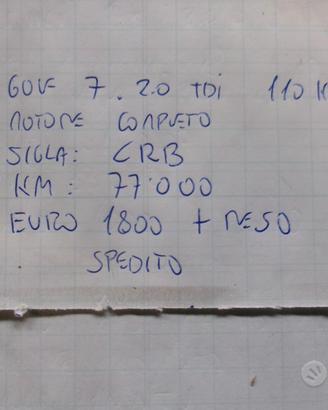 GOLF 7. 2.0 TDI 110 K
MOTORE COMPLETO
SIGLA: CRB
KM: 77'000
EURO 1800 + RESO
SPEDITO